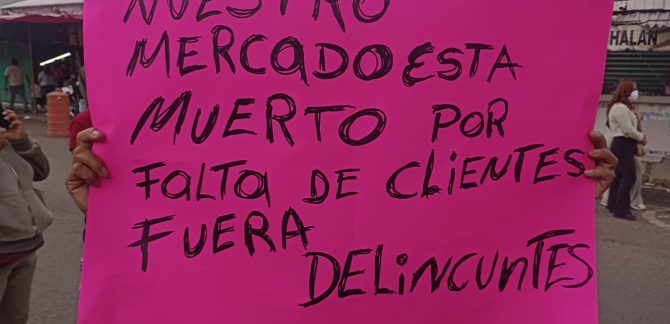 NUESTRO
MERCADO ESTA
MUERTO POR
FALTA DE CLIENTES
FUERA
DELINCUNTES
HALAN